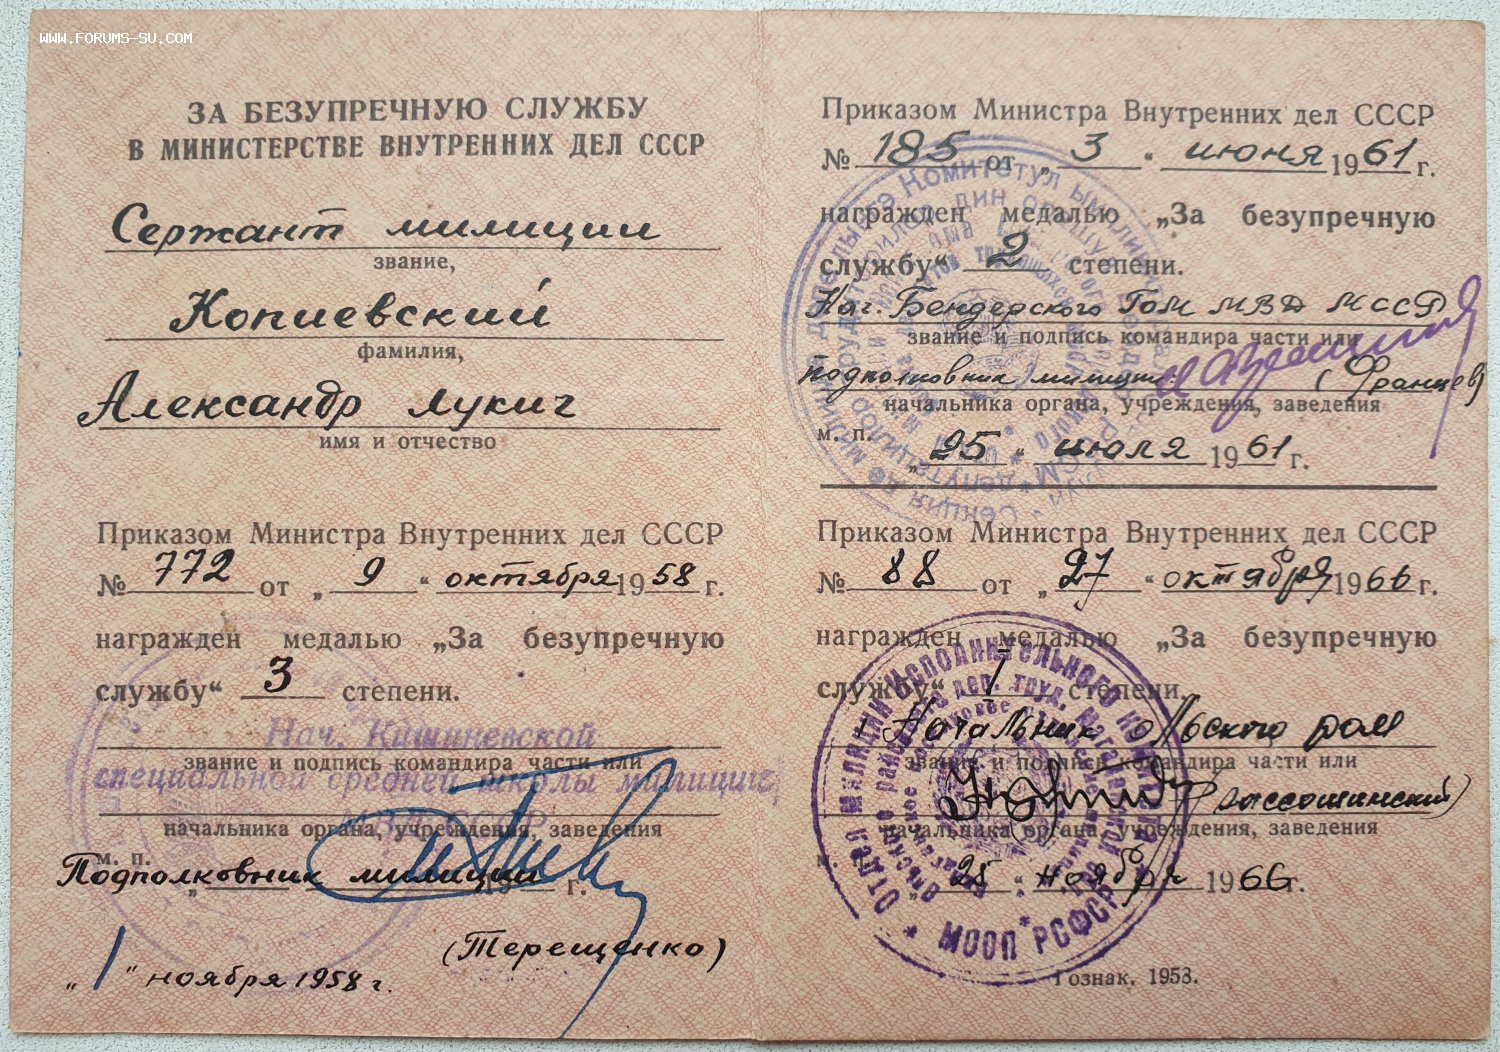 WWW.FORUMS-SU.COM
ЗА БЕЗУПРЕЧНУЮ СЛУЖБУ
В МИНИСТЕРСТВЕ ВНУТРЕННИХ ДЕЛ СССР
Сержант милиции
звание,
Копиевский
фамилия,
Александр Лукич
имя и отчество
Приказом Министра Внутренних дел СССР
№ 772 от „ 9 “ октября 1958 г.
награжден медалью „За безупречную
службу“ 3 степени.
Нач. Кишиневской
звание и подпись командира части или
специальной средней школы милиции
начальника органа, учреждения, заведения
м. п.
Подполковник милиции г.
(Терещенко)
„1“ ноября 1958 г.
Приказом Министра Внутренних дел СССР
№ 185 от „ 3 “ июня 1961 г.
награжден медалью „За безупречную
службу“ 2 степени.
Нач. Бендерского ГОМ МВД МССР
звание и подпись командира части или
подполковник милиции (Францев)
начальника органа, учреждения, заведения
м. п.
„25 “ июля 1961 г.
Приказом Министра Внутренних дел СССР
№ 88 от „ 27 “ октября 1966 г.
награжден медалью „За безупречную
службу“ I степени.
Начальник Ольского РОМ
звание и подпись командира части или
(Рассошинский)
начальника органа, учреждения, заведения
м. п.
„ 25 “ ноября 1966 г.
ОТДЕЛ МИЛИЦИИ ИСПОЛНИТЕЛЬНОГО КОМИТЕТА
* МООП РСФСР *
Гознак. 1953.